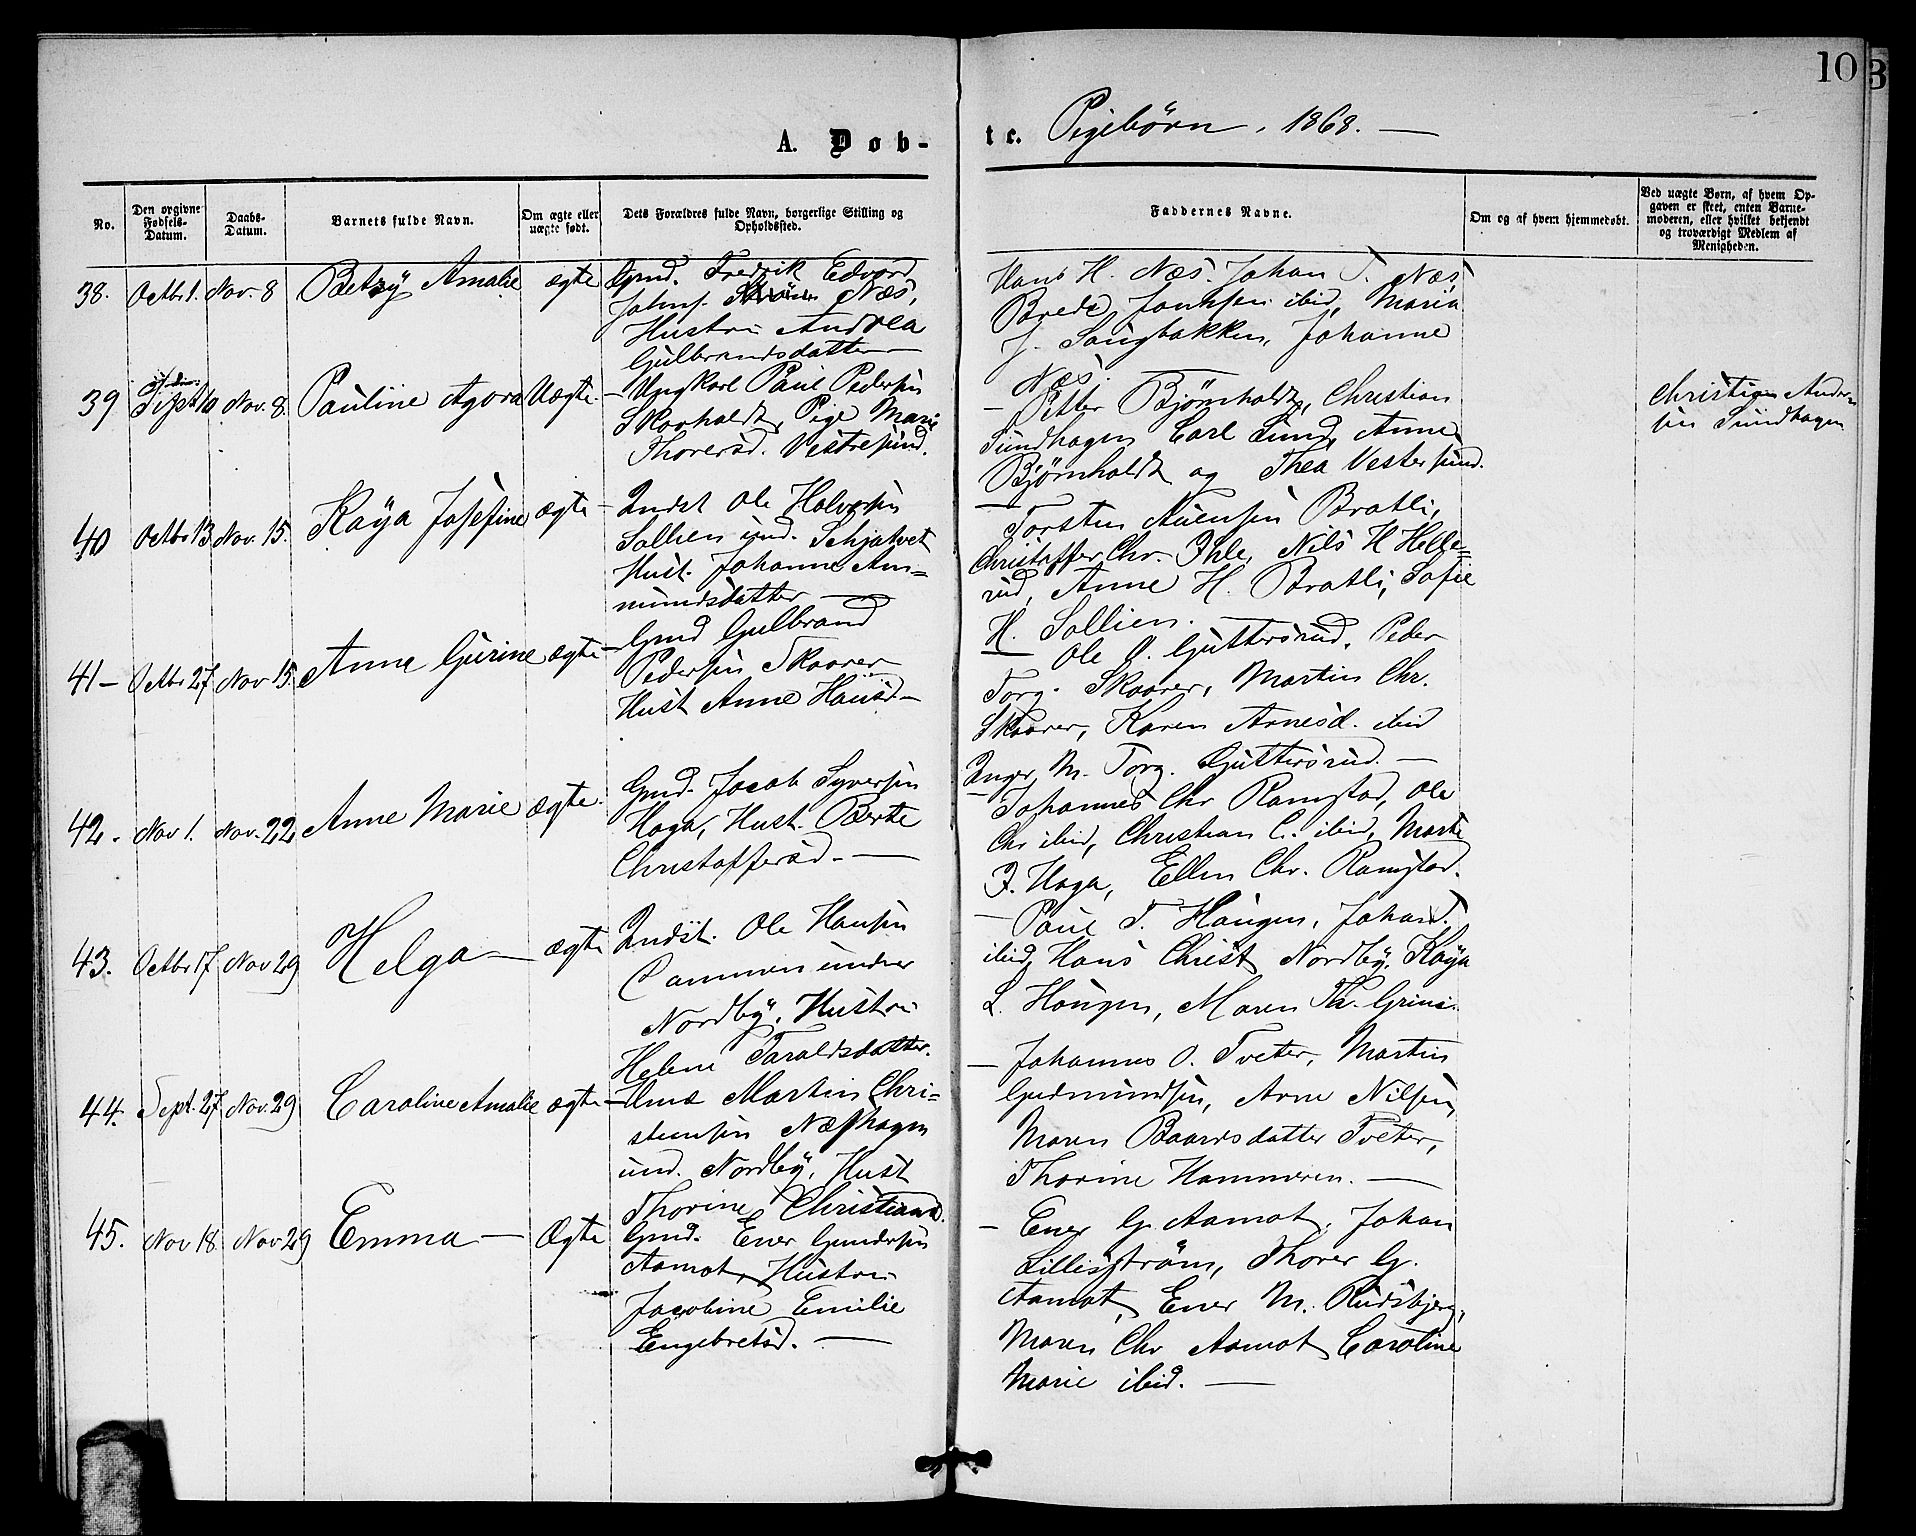 10
A. Døb-
te. Pigebørn, 1868. —
No.
Den opgivne Fødsels-Datum.
Daabs-Datum.
Barnets fulde Navn.
Om ægte eller uægte født.
Dets Forældres fulde Navn, borgerlige Stilling og Opholdssted.
Faddernes Navne.
Om og af hvem hjemmedøbt.
Ved uægte Børn, af hvem Opgaven er skeet, enten Barnemoderen, eller hvilket bekjendt og troværdigt Medlem af Menigheden.
38. Octbr 1. Nov. 8 Betzÿ Amalie ægte
Gmd. Fredrik Edvard
Johns. Næs,
Hustru Andrea
Gulbrandsdatter —
Hans H. Næs, Johan T. Næs,
Brede Jonhsen ibid, Maria
J. Saugbakken, Johanne
Næs.
39 Sept 10 Nov. 8. Pauline Agora Uægte.
— Ungkarl Paul Pedersen
Skovholdt, Pige Marie
Thorersd. Vestresund.
— Petter Bjørnholdt, Christian
Sundhagen Carl Sund, Anne
Bjørnholdt og Thea Vestersund.
Christian Ander-
sen Sundhagen
40 Octbr 13 Nov. 15. Kaÿa Josefine ægte —
Indst Ole Halvorsen
Sollien und. Schjatvet
Hust. Johanne Am-
mundsdatter —
— Torsten Auensen Bratli,
Christoffer Chr. Ihle, Nils H Helle-
rud, Anne H. Bratli, Sofie
H. Sollien.
41 — Octbr 27 Nov 15. Anne Gurine ægte —
Gmd Gulbrand
Pedersen Skaarer
Hust Anne Hansd —
Ole O. Guttersrud, Peder
Torg. Skaarer, Martin Chr.
Skaarer, Karen Arnesd. ibid
Inger M. Torg. Guttersrud. —
42. Nov 1. Nov. 22 Anne Marie ægte.
Gmd. Jacob Syversen
Haga, Hust. Berte
Christoffersd. —
Johannes Chr Ramstad, Ole
Chr ibid, Christian C. ibid, Marte
J. Haga, Ellen Chr. Ramstad.
43. Octbr 17 Nov 29 Helga — ægte
Indst. Ole Hansen
Dammen under
Nordbÿ, Hustru
Helene Taraldsdatter.
— Paul T. Haugen, Johan T.
ibid, Hans Christ Nordbÿ, Kaÿa
L. Haugen, Maren Th. Grini.
44. Sept. 27 Nov. 29 Caroline Amalie ægte —
Hmd Martin Chri-
stensen Næshagen
und. Nordbÿ, Hust
Thorine Christiansd.
— Johannes O. Tveter, Martin
Gudmundsen, Arne Nilsen,
Maren Baardsdatter Tveter,
Thorine Hammeren. —
45. Nov 18. Nov 29 Emma — Ægte
Gmd. Ener Gundersen
Aamot, Hustru
Jacobine Emilie
Engebretsd. —
— Ener G. Aamot, Johan
Lillestrøm, Thorer G.
Aamot, Ener M. Rudsbjerg,
Maren Chr Aamot, Caroline
Marie ibid. —